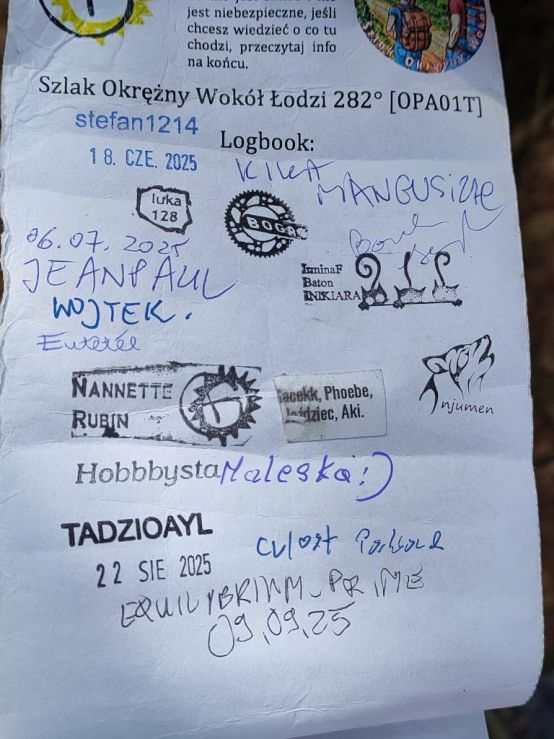 jest niebezpieczne, jeśli
chcesz wiedzieć o co tu
chodzi, przeczytaj info
na końcu.
Szlak Okrężny Wokół Łodzi 282° [OPA01T]
stefan1214
Logbook:
18. CZE. 2025
KIKA
MANGUSIZAE
luka
128
BOGA
06.07.2025
JEANPAUL
IzminaF
Baton
INIKIARA
WOJTEK.
NANNETTE
RUBIN
Jacekk, Phoebe,
Jeździec, Aki.
Injumen
Hobbbysta Maleska :)
TADZIOAYL
22 SIE 2025
EQUILYBRIUM_PRIME
09.09.25